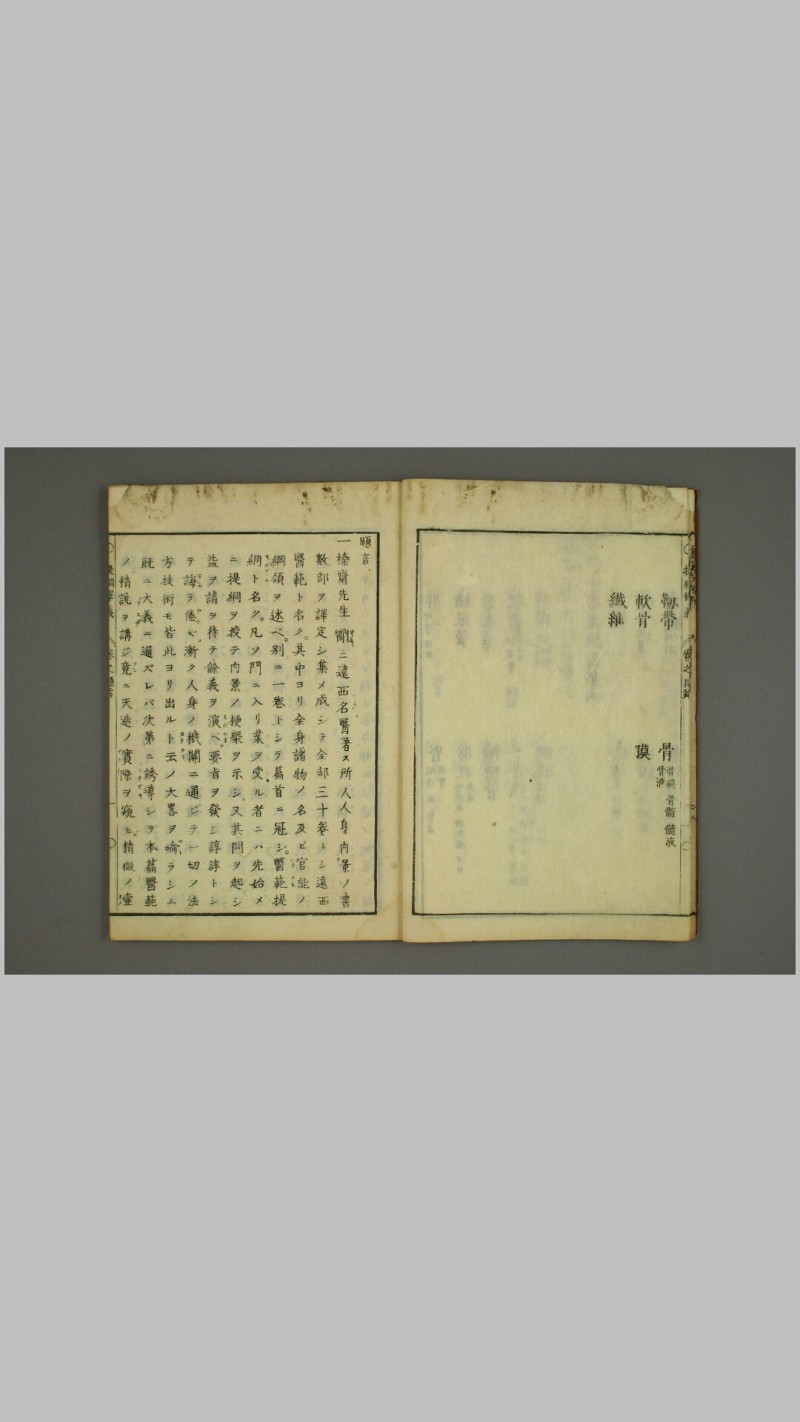 靱帶 骨 骨硬 骨髓 髓液 骨液
軟骨 膜
纖維
題言
一榛齋先生嘗ニ遠西名醫著ス所人人身内景ノ書
數部ヲ譯定シ集メ成シテ全部三十卷トシ遠西
醫範ト名ク其中ヨリ全身諸物ノ名及ビ官能ノ
綱領ヲ述ベ別ニ一卷トシテ篇首ニ冠シ醫範提
綱ト名ク凡ソ門ニ入リ業ヲ受ル者ニハ先始メ
ニ提綱ヲ授テ内景ノ梗槩ヲ示シ又其問ヲ起シ
益ヲ請ヲ待テ餘義ヲ演ベ要旨ヲ發シ諄諄トシ
テ誨テ倦ズ漸ク人身ノ機關ニ通ジテ一切ノ法
方技術モ皆此ヨリ出ルト云ノ大畧ヲ喩ラシム
既ニ大義ニ通ズレバ次第ニ誘導シテ本篇醫範
ノ精説ヲ講ジ竟ニ天造ノ實際ヲ窺ヒ精微ノ壼